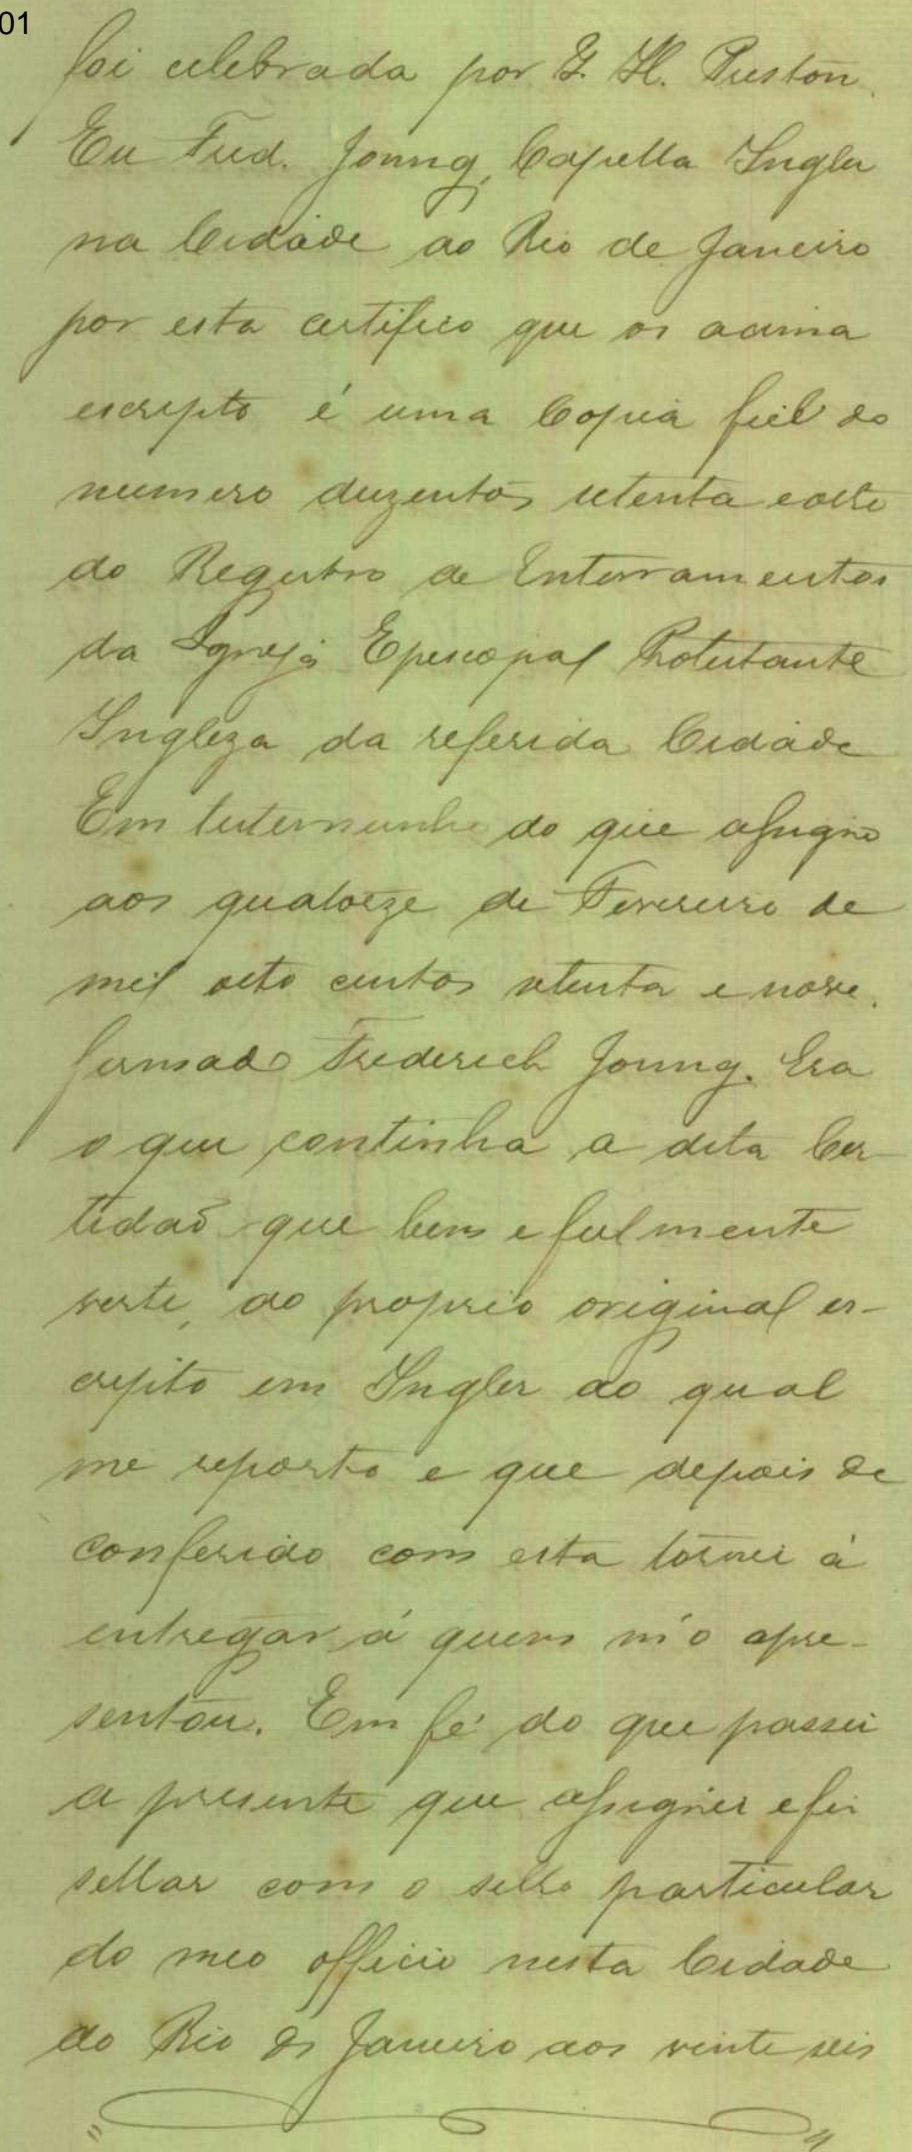 01
foi celebrada por G. H. Preston.
Eu Fred. Joung, Capella Ingles
na Cidade do Rio de Janeiro
por esta certifico que os acima
escripto é uma Copia fiel do
numero duzentos setenta e oito
do Registro de Enterramentos
da Igreja Episcopal Protestante
Ingleza da referida Cidade
Em testemunho do que assigno
aos quatorze de Fevereiro de
mil oito centos setenta e nove.
firmado Frederich Joung. Era
o que continha a dita Cer-
tidaõ que bem e fielmente
verti, do proprio original es-
cripto em Ingles ao qual
me reporto e que depois de
conferido com esta tornei á
entregar á quem m'o apre-
sentou. Em fé do que passei
a presente que assignei e fis
sellar com o sello particular
do meo officio nesta Cidade
do Rio de Janeiro aos vinte seis